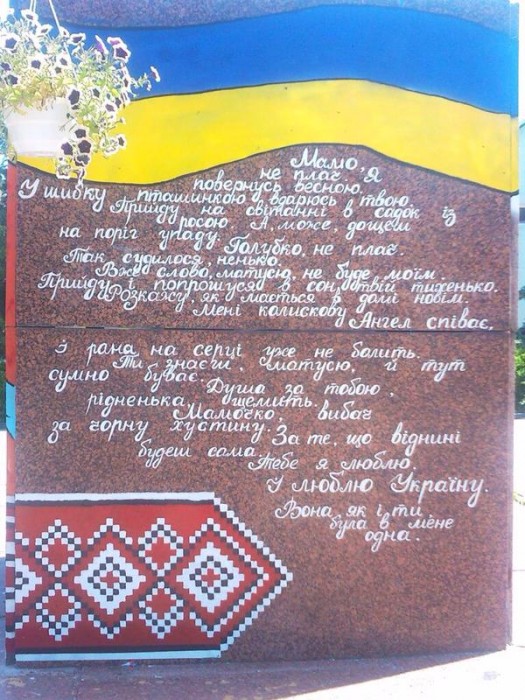 Мамо,
не плач. Я
повернусь весною.
У шибку пташинкою вдарюсь твою.
Прийду на світанні в садок із
росою. А, може, дощем
на поріг упаду.
Голубко, не плач.
Так судилося, ненько.
Вже слово, матусю, не буде моїм.
Прийду і попрошуся в сон твій тихенько.
Розкажу, як мається в домі новім.
Мені колискову
Ангел співає,
І рана на серці уже не болить.
Ти знаєш, матусю, й тут
сумно буває.
Душа за тобою,
рідненька, щемить.
Мамочко, вибач
за чорну хустину.
За те, що віднині
будеш сама.
Тебе я люблю.
І люблю Україну.
Вона, як і ти,
була в мене
одна.